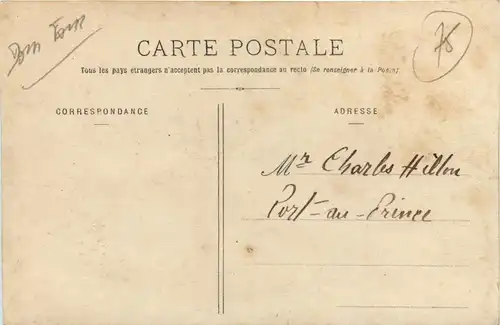 75
CARTE POSTALE
Tous les pays étrangers n'acceptent pas la correspondance au recto (Se renseigner à la Poste)
CORRESPONDANCE
ADRESSE
Mr Charles Hillon
Port-au-Prince